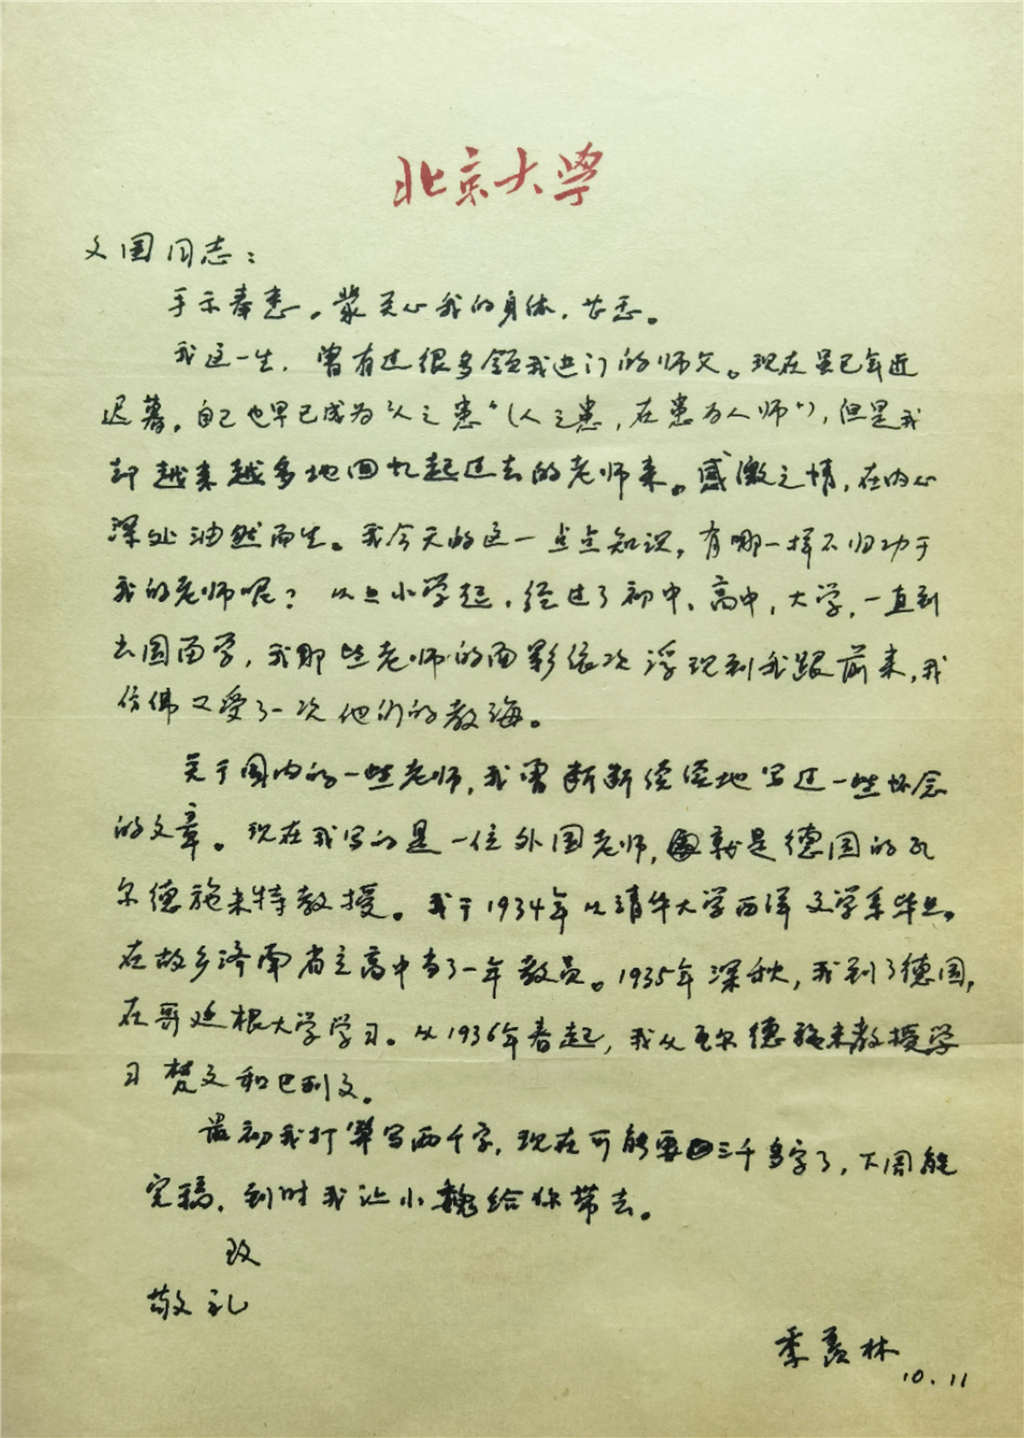 北京大学
文国同志：
手示奉悉。蒙关心我的身体，甚感。
我这一生，曾有过很多领我进门的师父。现在虽已年近
迟暮，自己也早已成为“人之患”（“人之患，在患为人师”），但是我
却越来越多地回忆起过去的老师来。感激之情，在内心
深处油然而生。我今天的这一点点知识，有哪一样不归功于
我的老师呢？从上小学起，经过了初中、高中，大学，一直到
出国留学，我那些老师的面影依次浮现到我跟前来，我
仿佛又受了一次他们的教诲。
关于国内的一些老师，我曾断断续续地写过一些怀念
的文章。现在我写的是一位外国老师，就是德国的瓦
尔德施米特教授。我于1934年从清华大学西洋文学系毕业。
在故乡济南省立高中当了一年教员。1935年深秋，我到了德国，
在哥廷根大学学习。从1936年春起，我从瓦尔德施米教授学
习梵文和巴利文。
最初我打算写两千字，现在可能要三千多字了，下周能
完稿，到时我让小魏给你带去。
致
敬礼
季羡林
10.11